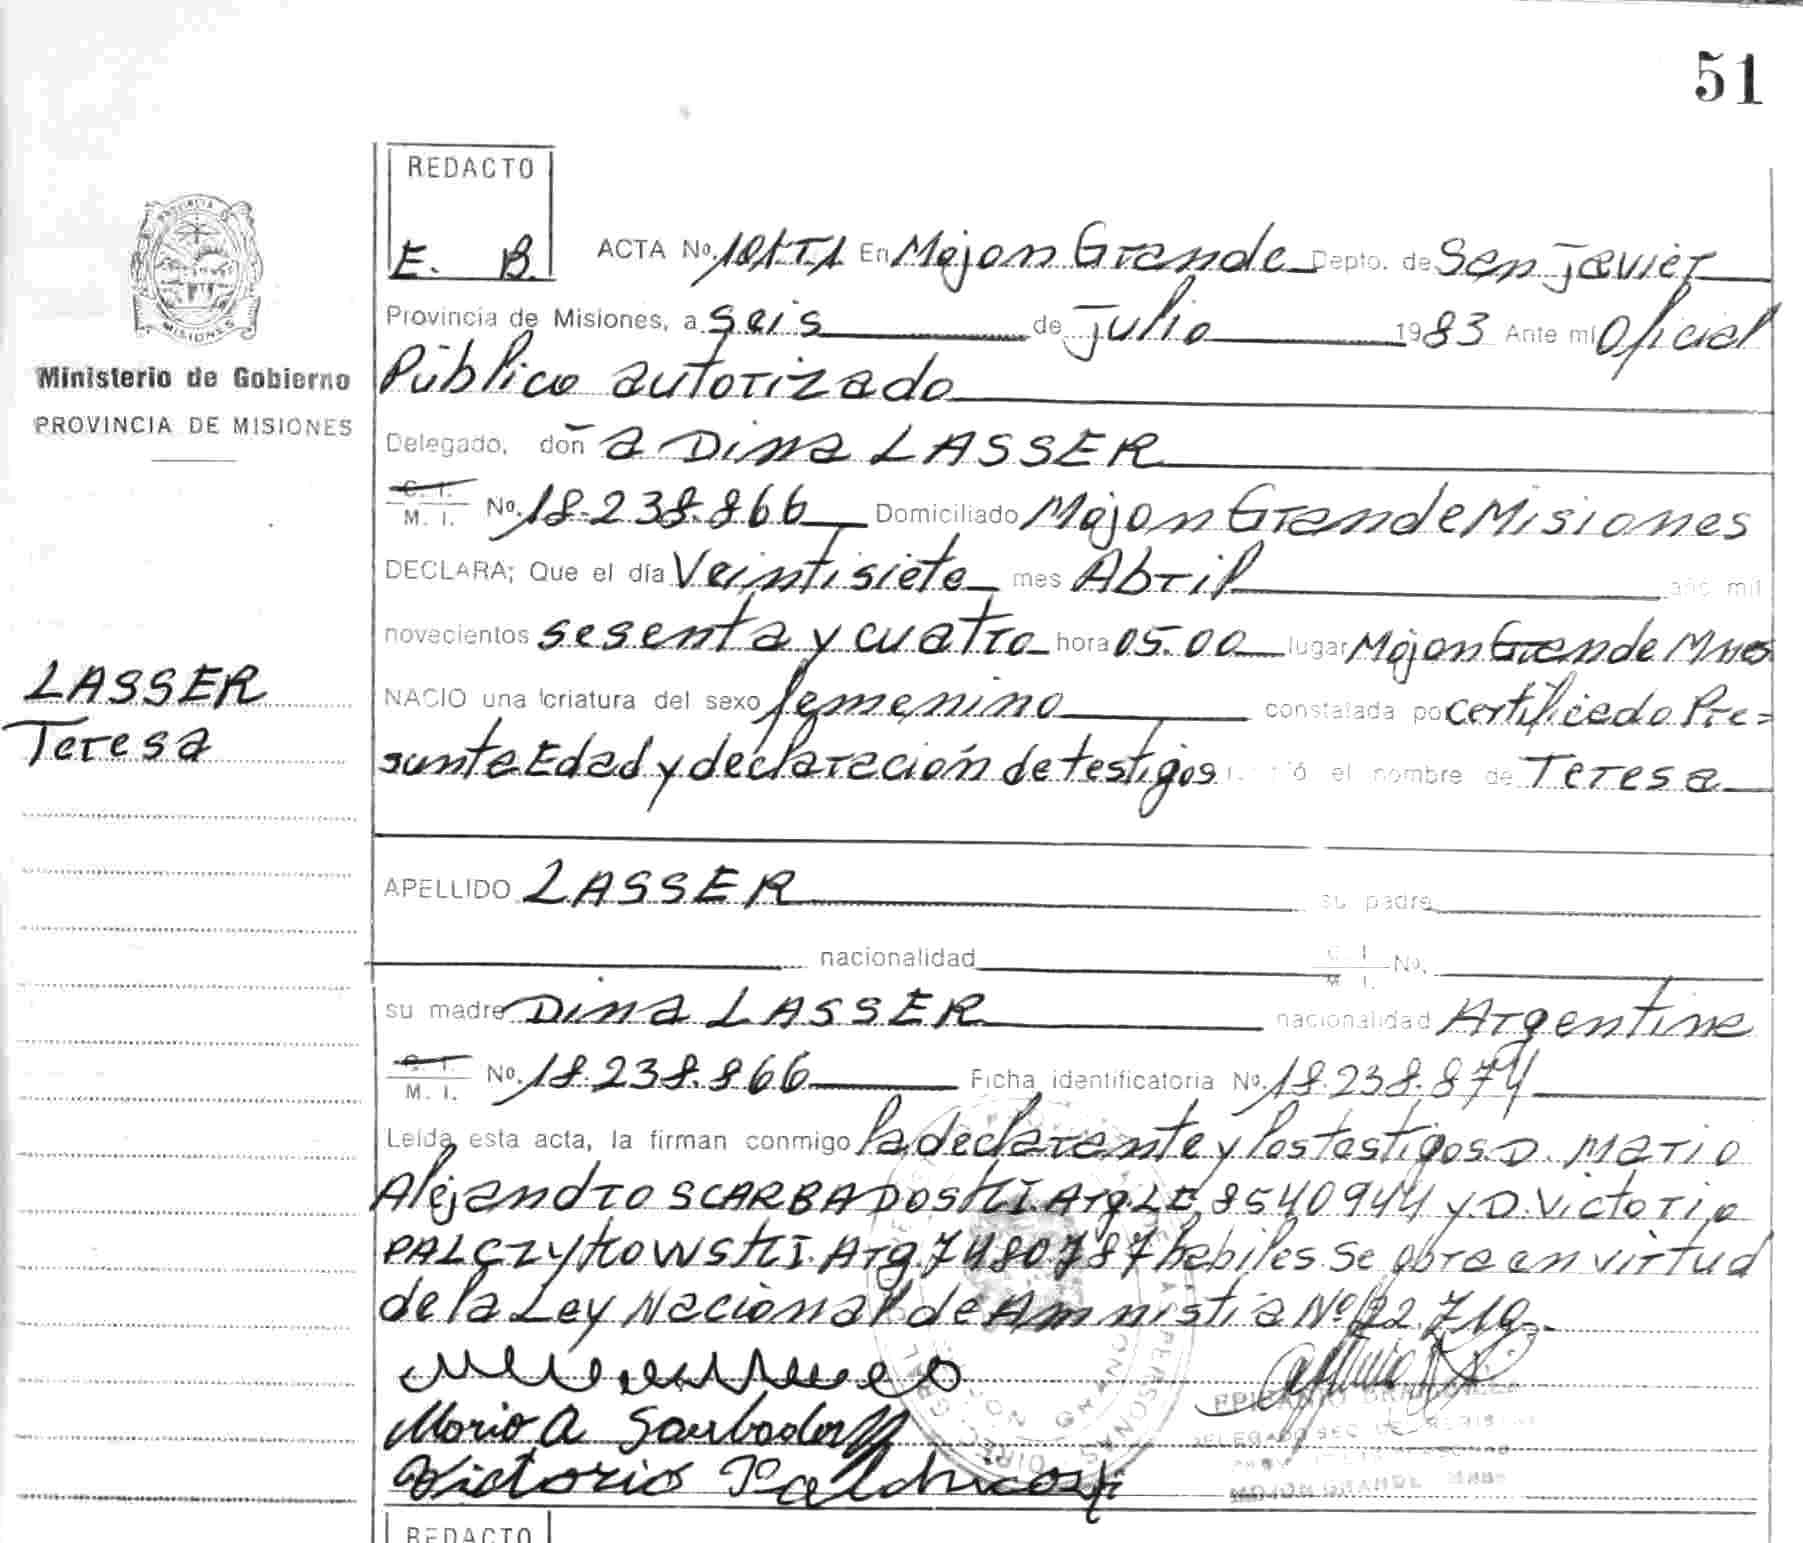 51
REDACTO
E. B.
PROVINCIA
MISIONES
Ministerio de Gobierno
PROVINCIA DE MISIONES
ACTA No. 101T1 En Mojon Grande Depto. de San Javier
Provincia de Misiones, a seis de Julio 1983 Ante mi Oficial
Público autorizado
Delegado, don a Dina LASSER
C. I. M. I. No. 18.238.866 Domiciliado Mojon Grande Misiones
DECLARA; Que el día Veintisiete mes Abril año mil
novecientos sesenta y cuatro hora 05.00 lugar Mojon Grande Mnes
LASSER
Teresa
NACIO una criatura del sexo femenino constatada po certificado Pre=
sunta Edad y declaración de testigos el nombre de Teresa
APELLIDO LASSER su padre
nacionalidad C. I. M. I. No.
su madre Dina LASSER nacionalidad Argentina
C. I. M. I. No. 18.238.866 Ficha identificatoria No. 18.238.874
Leída esta acta, la firman conmigo la declarante y los testigos D. Mario
Alejandro SCARBADOSKI. Arg. LE. 8540944 y D. Victorio
PALCZYKOWSKI. Arg. 7480787 habiles. Se obra en virtud
de la Ley Nacional de Amnistia Nº 22.719.-
Mario A
Victorio
REDACTO